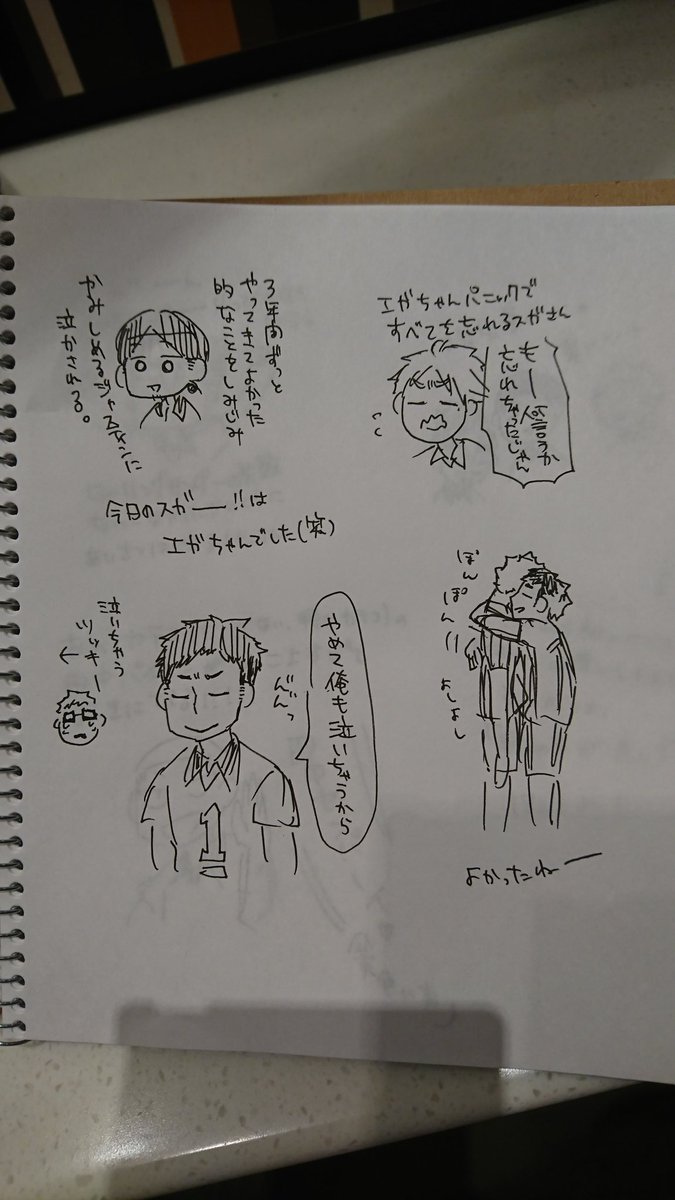 エガちゃんパニックで
すべてを忘れるスガさん
もー何言うか
忘れちゃったじゃん
3年間ずっと
やってきてよかった
的なことをしみじみ
かみしめるジャスティンに
泣かされる。
今日のスガー!!は
エガちゃんでした(笑)
ぽんぽん
よしよし
よかったねー
やめて俺も泣いちゃうから
泣いちゃう
ツッキー
←
1